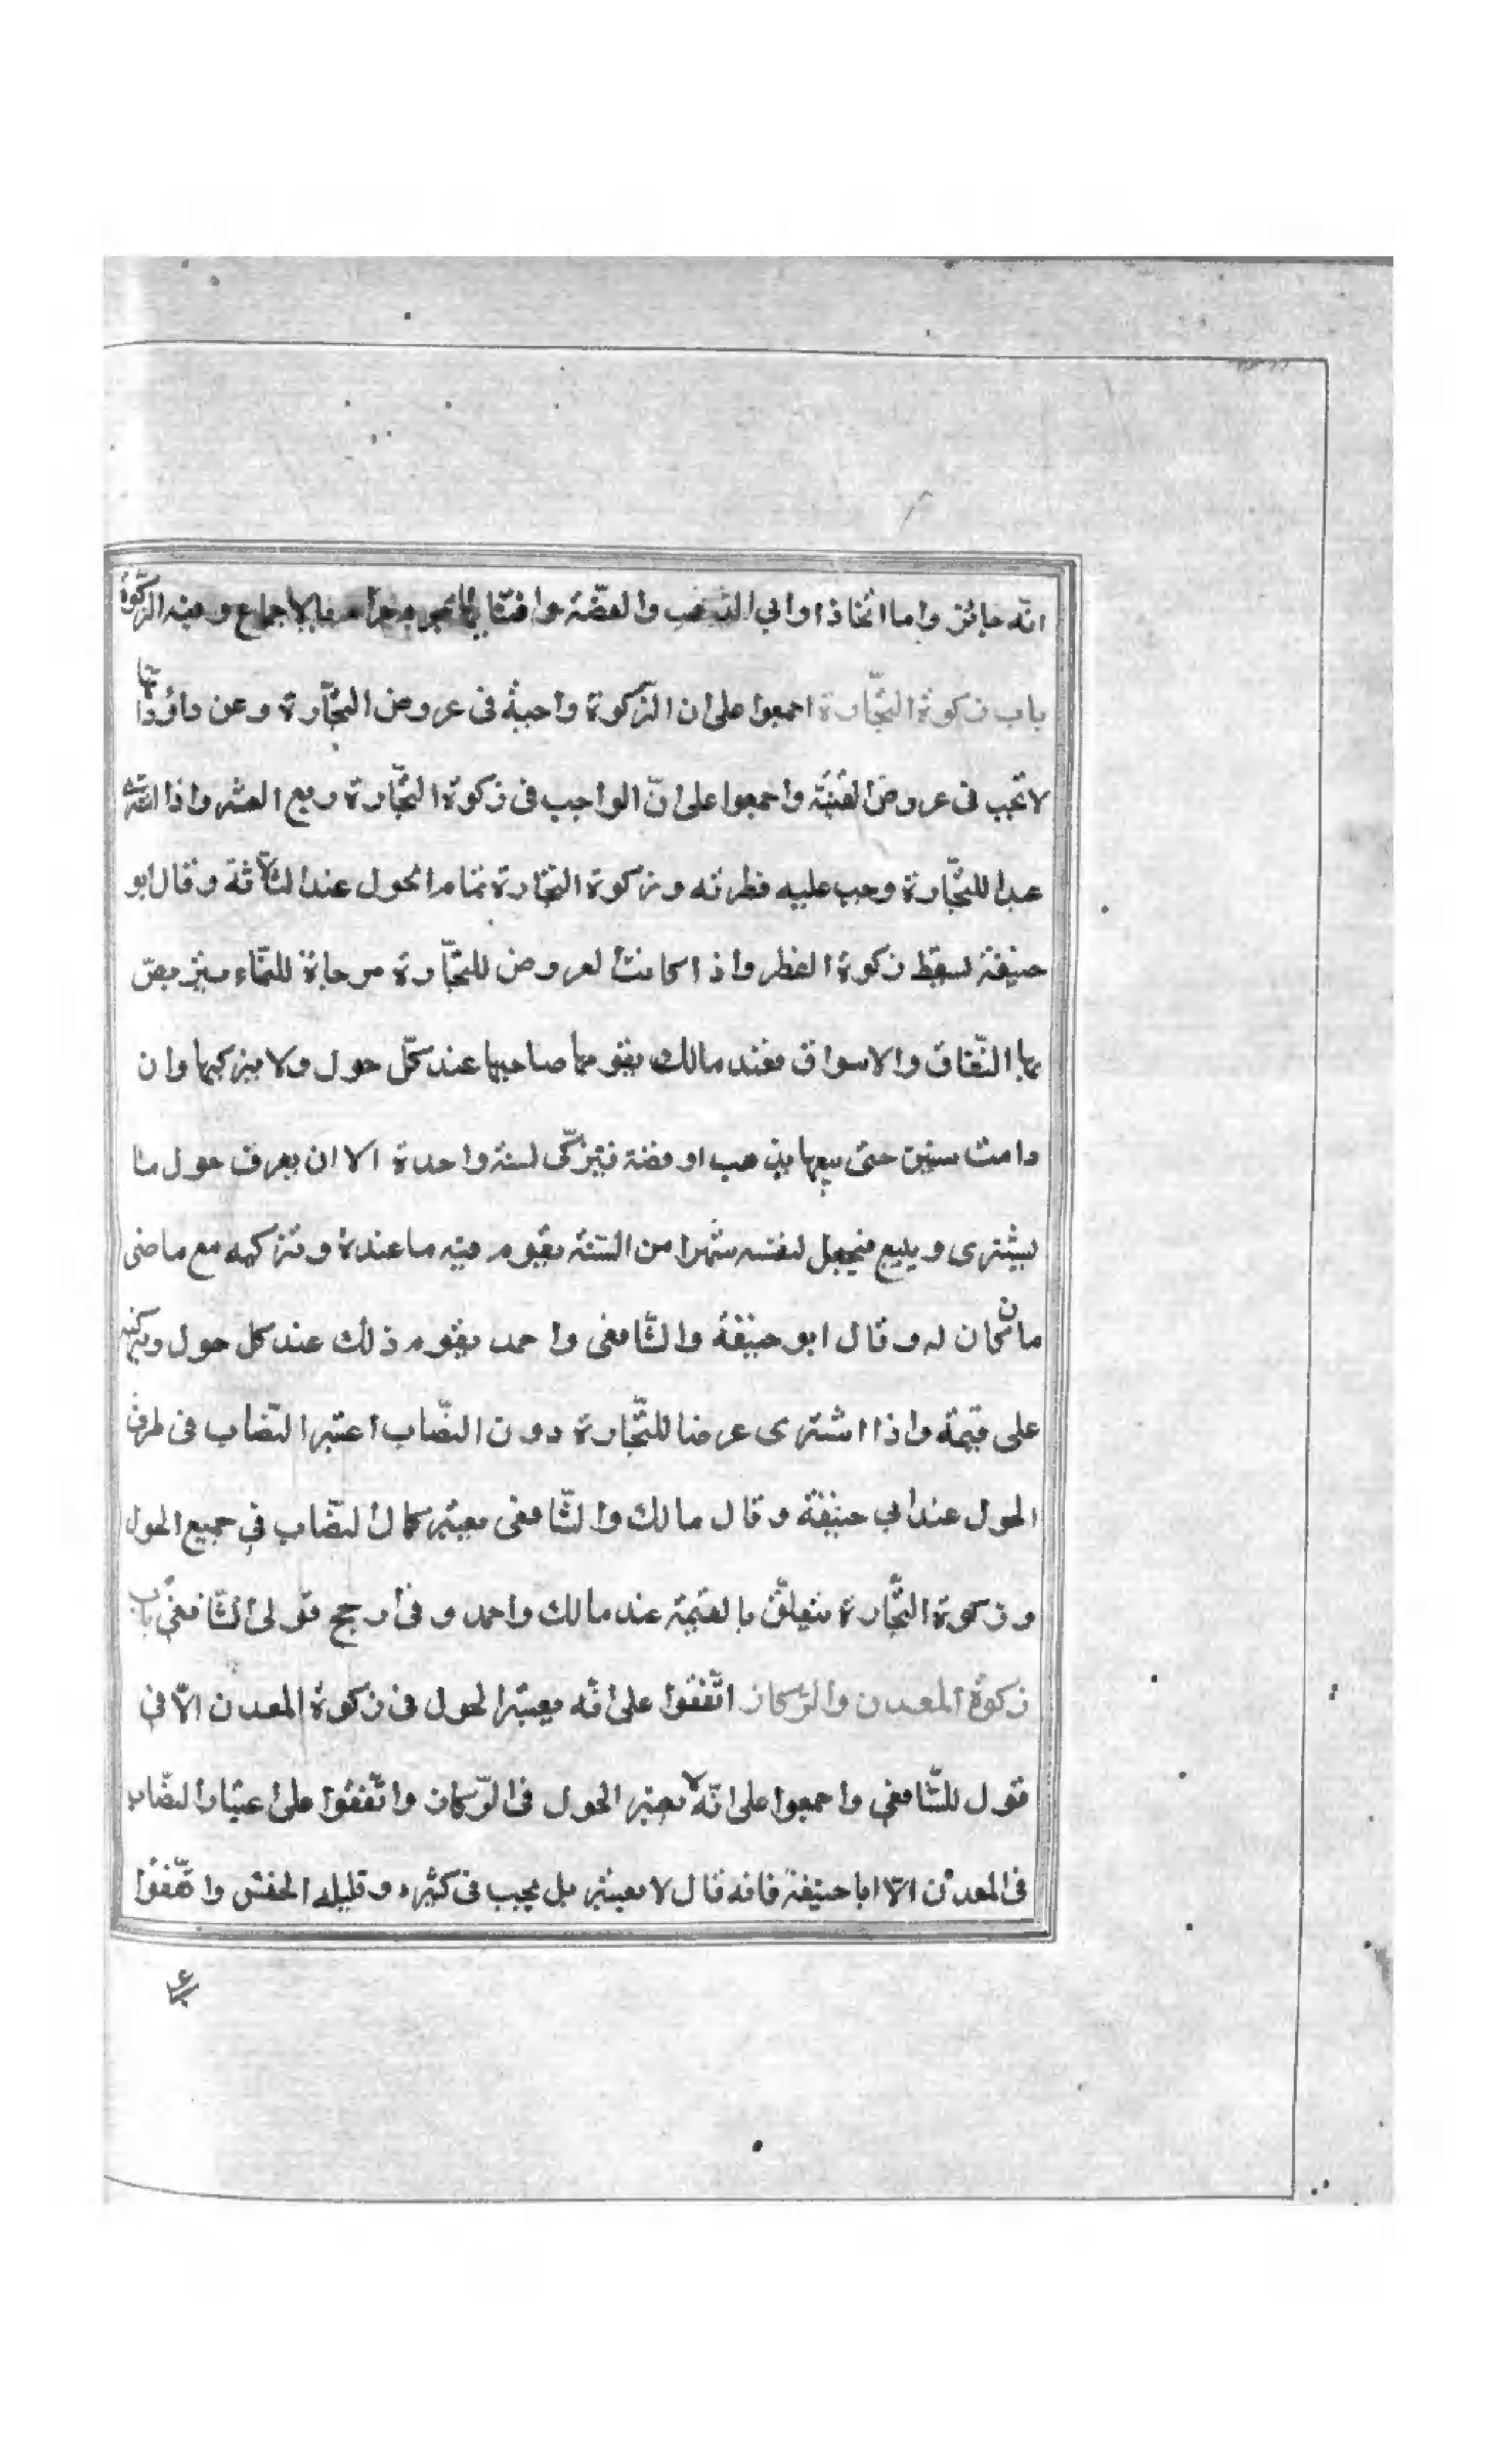 انّه جائز واما اتّخاذ اواني الذهب والفضّة واقتنائها فمحرم بالاجماع وفيه الزكوة
باب زكوة التجّارة اجمعوا على ان الزّكوة واجبة فى عروض التجّارة وعن داؤد انها
لا تجب فى عروض القنية واجمعوا على انّ الواجب فى زكوة التجّارة ربع العشر واذا اشترى
عبدا للتجّارة وجب عليه فطرته وزكوة التجارة تمام الحول عند الثلاثة وقال ابو
حنيفة تسقط زكوة الفطر واذا كانت العروض للتجّارة مرجاة للنّماء يتربص
بها النّفاق والاسواق فعند مالك يقومها صاحبها عند كلّ حول ولا يزكيها وان
دامت سنين حتى يبيعها بذهب او فضة فيزكّى لسنة واحدة الا ان يعرف حول ما
يشترى ويبيع فيجعل لنفسه شهرا من السّنة يقوم فيه ما عنده وتزكيه مع ناضى
مان كان له وقال ابو حنيفة والشّافعى واحمد يقوم ذلك عند كل حول ويزكيه
على قيمة واذا اشترى عرضا للتجّارة دون النصّاب اعتبر النصّاب فى طرفى
الحول عند ابي حنيفة وقال مالك والشّافعى يعتبر كمال النصّاب في جميع الحول
و زكوة التجّارة يتعلّق بالقيمة عند مالك واحمد و فى ارجح قولى الشّافعي باب
زكوة المعدن والركاز اتّفقوا على انّه يعتبر الحول فى زكوة المعدن الّا في
قول للشّافعي واجمعوا على انّه لا يعتبر الحول فى الرّكاز واتّفقوا على اعتبار النصّاب
فى المعدن الّا ابا حنيفة فانه قال لا يعتبر بل يجب فى كثيره وقليله الخمس واتّفقوا